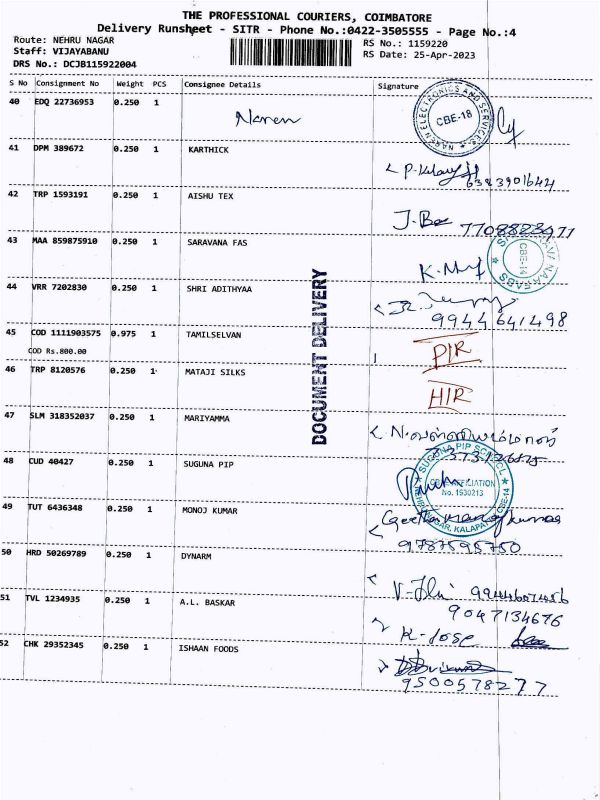 THE PROFESSIONAL COURIERS, COIMBATORE
Delivery Runsheet - SITR - Phone No.:0422-3505555 - Page No.:4
Route: NEHRU NAGAR
RS No.: 1159220
Staff: VIJAYABANU
RS Date: 25-Apr-2023
DRS No.: DCJB115922004
S No Consignment No Weight PCS Consignee Details Signature
40 EDQ 22736953 0.250 1 Naren
NAREN ELECTRONICS AND SERVICES
CBE-18
41 DPM 389672 0.250 1 KARTHICK
6383901644
42 TRP 1593191 0.250 1 AISHU TEX
7708823971
43 MAA 859875910 0.250 1 SARAVANA FAS
CBE-14
44 VRR 7202830 0.250 1 SHRI ADITHYAA
9944641498
DOCUMENT DELIVERY
45 COD 1111903575 0.975 1 TAMILSELVAN
COD Rs.800.00
46 TRP 8120576 0.250 1 MATAJI SILKS
47 SLM 318352037 0.250 1 MARIYAMMA
48 CUD 40427 0.250 1 SUGUNA PIP
SUGUNA PIP SCHOOL
No. 1930213
49 TUT 6436348 0.250 1 MONOJ KUMAR
9787595750
50 HRD 50269789 0.250 1 DYNARM
51 TVL 1234935 0.250 1 A.L. BASKAR
9047134676
K-Jose
52 CHK 29352345 0.250 1 ISHAAN FOODS
9500578277